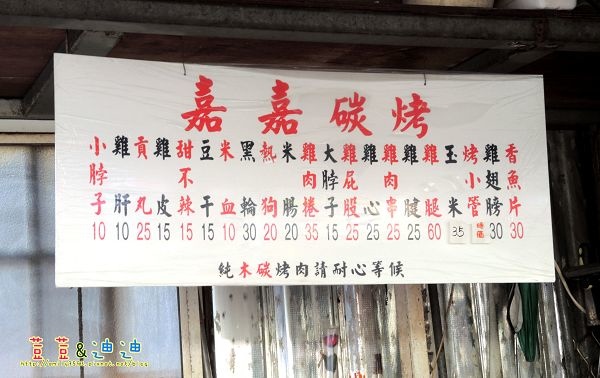 嘉嘉碳烤
小脖子 10
雞肝 10
貢丸 25
雞皮 15
甜不辣 15
豆干 15
米血 10
黑輪 30
熱狗 20
米腸 20
雞肉捲 35
大脖子 15
雞屁股 25
雞心 25
雞肉串 25
雞腱 25
雞腿 60
玉米 35
烤小管 時價
雞翅膀 30
香魚片 30
純木碳烤肉請耐心等候
荳荳&迪迪